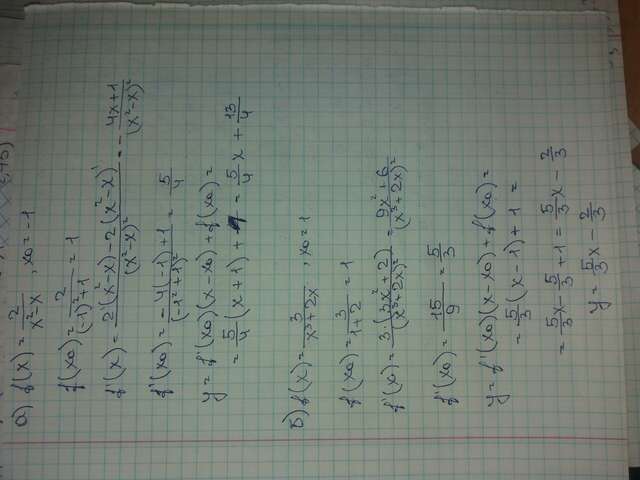 а) f(x) = 2/(x²-x), x₀ = -1
f(x₀) = 2/((-1)²+1) = 1
f'(x) = (2'(x²-x)-2(x²-x)')/(x²-x)² = - (4x+1)/(x²-x)²
f'(x₀) = - (4(-1)+1)/(-1²+1)² = 5/4
y = f'(x₀)(x-x₀)+f(x₀) =
= 5/4(x+1)+1 = 5/4x + 13/4
б) f(x) = 3/(x³+2x), x₀ = 1
f(x₀) = 3/(1+2) = 1
f'(x) = 3(3x²+2)/(x³+2x)² = (9x²+6)/(x³+2x)²
f'(x₀) = 15/9 = 5/3
y = f'(x₀)(x-x₀)+f(x₀) =
= 5/3(x-1)+1 =
= 5/3x - 5/3 + 1 = 5/3x - 2/3
y = 5/3x - 2/3